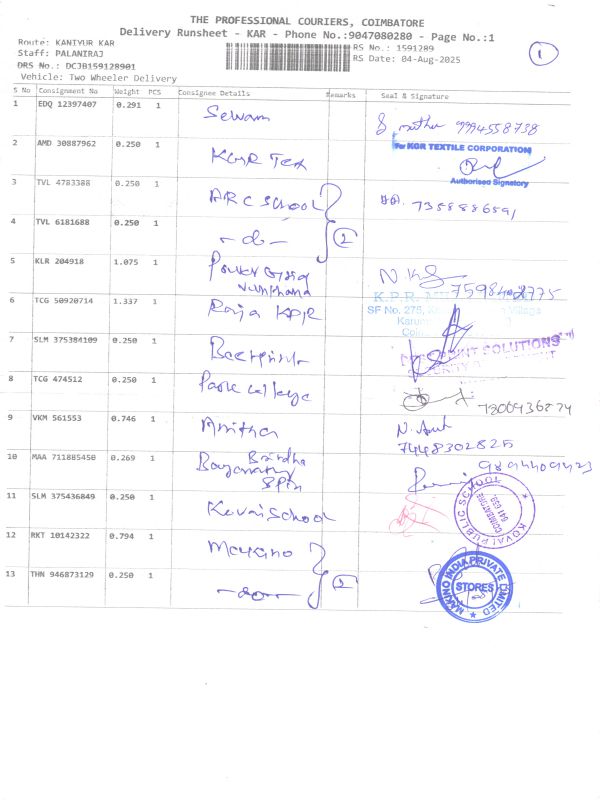 THE PROFESSIONAL COURIERS, COIMBATORE
Delivery Runsheet - KAR - Phone No.:9047080280 - Page No.:1
Route: KANIYUR KAR
RS No.: 1591289
1
Staff: PALANIRAJ
RS Date: 04-Aug-2025
DRS No.: DCJB159128901
Vehicle: Two Wheeler Delivery
S No Consignment No Weight PCS Consignee Details Remarks Seal & Signature
1 EDQ 12397407 0.291 1 Selvam 9994558738
2 AMD 30887962 0.250 1 KGR Tex For KGR TEXTILE CORPORATION
Authorised Signatory
3 TVL 4783388 0.250 1 ARC School 7358886591
4 TVL 6181688 0.250 1 -do- 2
5 KLR 204918 1.075 1
6 TCG 50920714 1.337 1 Raja KPR K.P.R.
SF No. 275, Village
7 SLM 375384109 0.250 1 PRINT SOLUTIONS
8 TCG 474512 0.250 1 Park College
9 VKM 561553 0.746 1 Anitha
7448302825
10 MAA 711885450 0.269 1
11 SLM 375436849 0.250 1 Kovai School KOVAI PUBLIC SCHOOL
COIMBATORE
641 659.
12 RKT 10142322 0.794 1 Makino
13 THN 946873129 0.250 1 -do- 2 MAKINO INDIA PRIVATE LIMITED
STORES